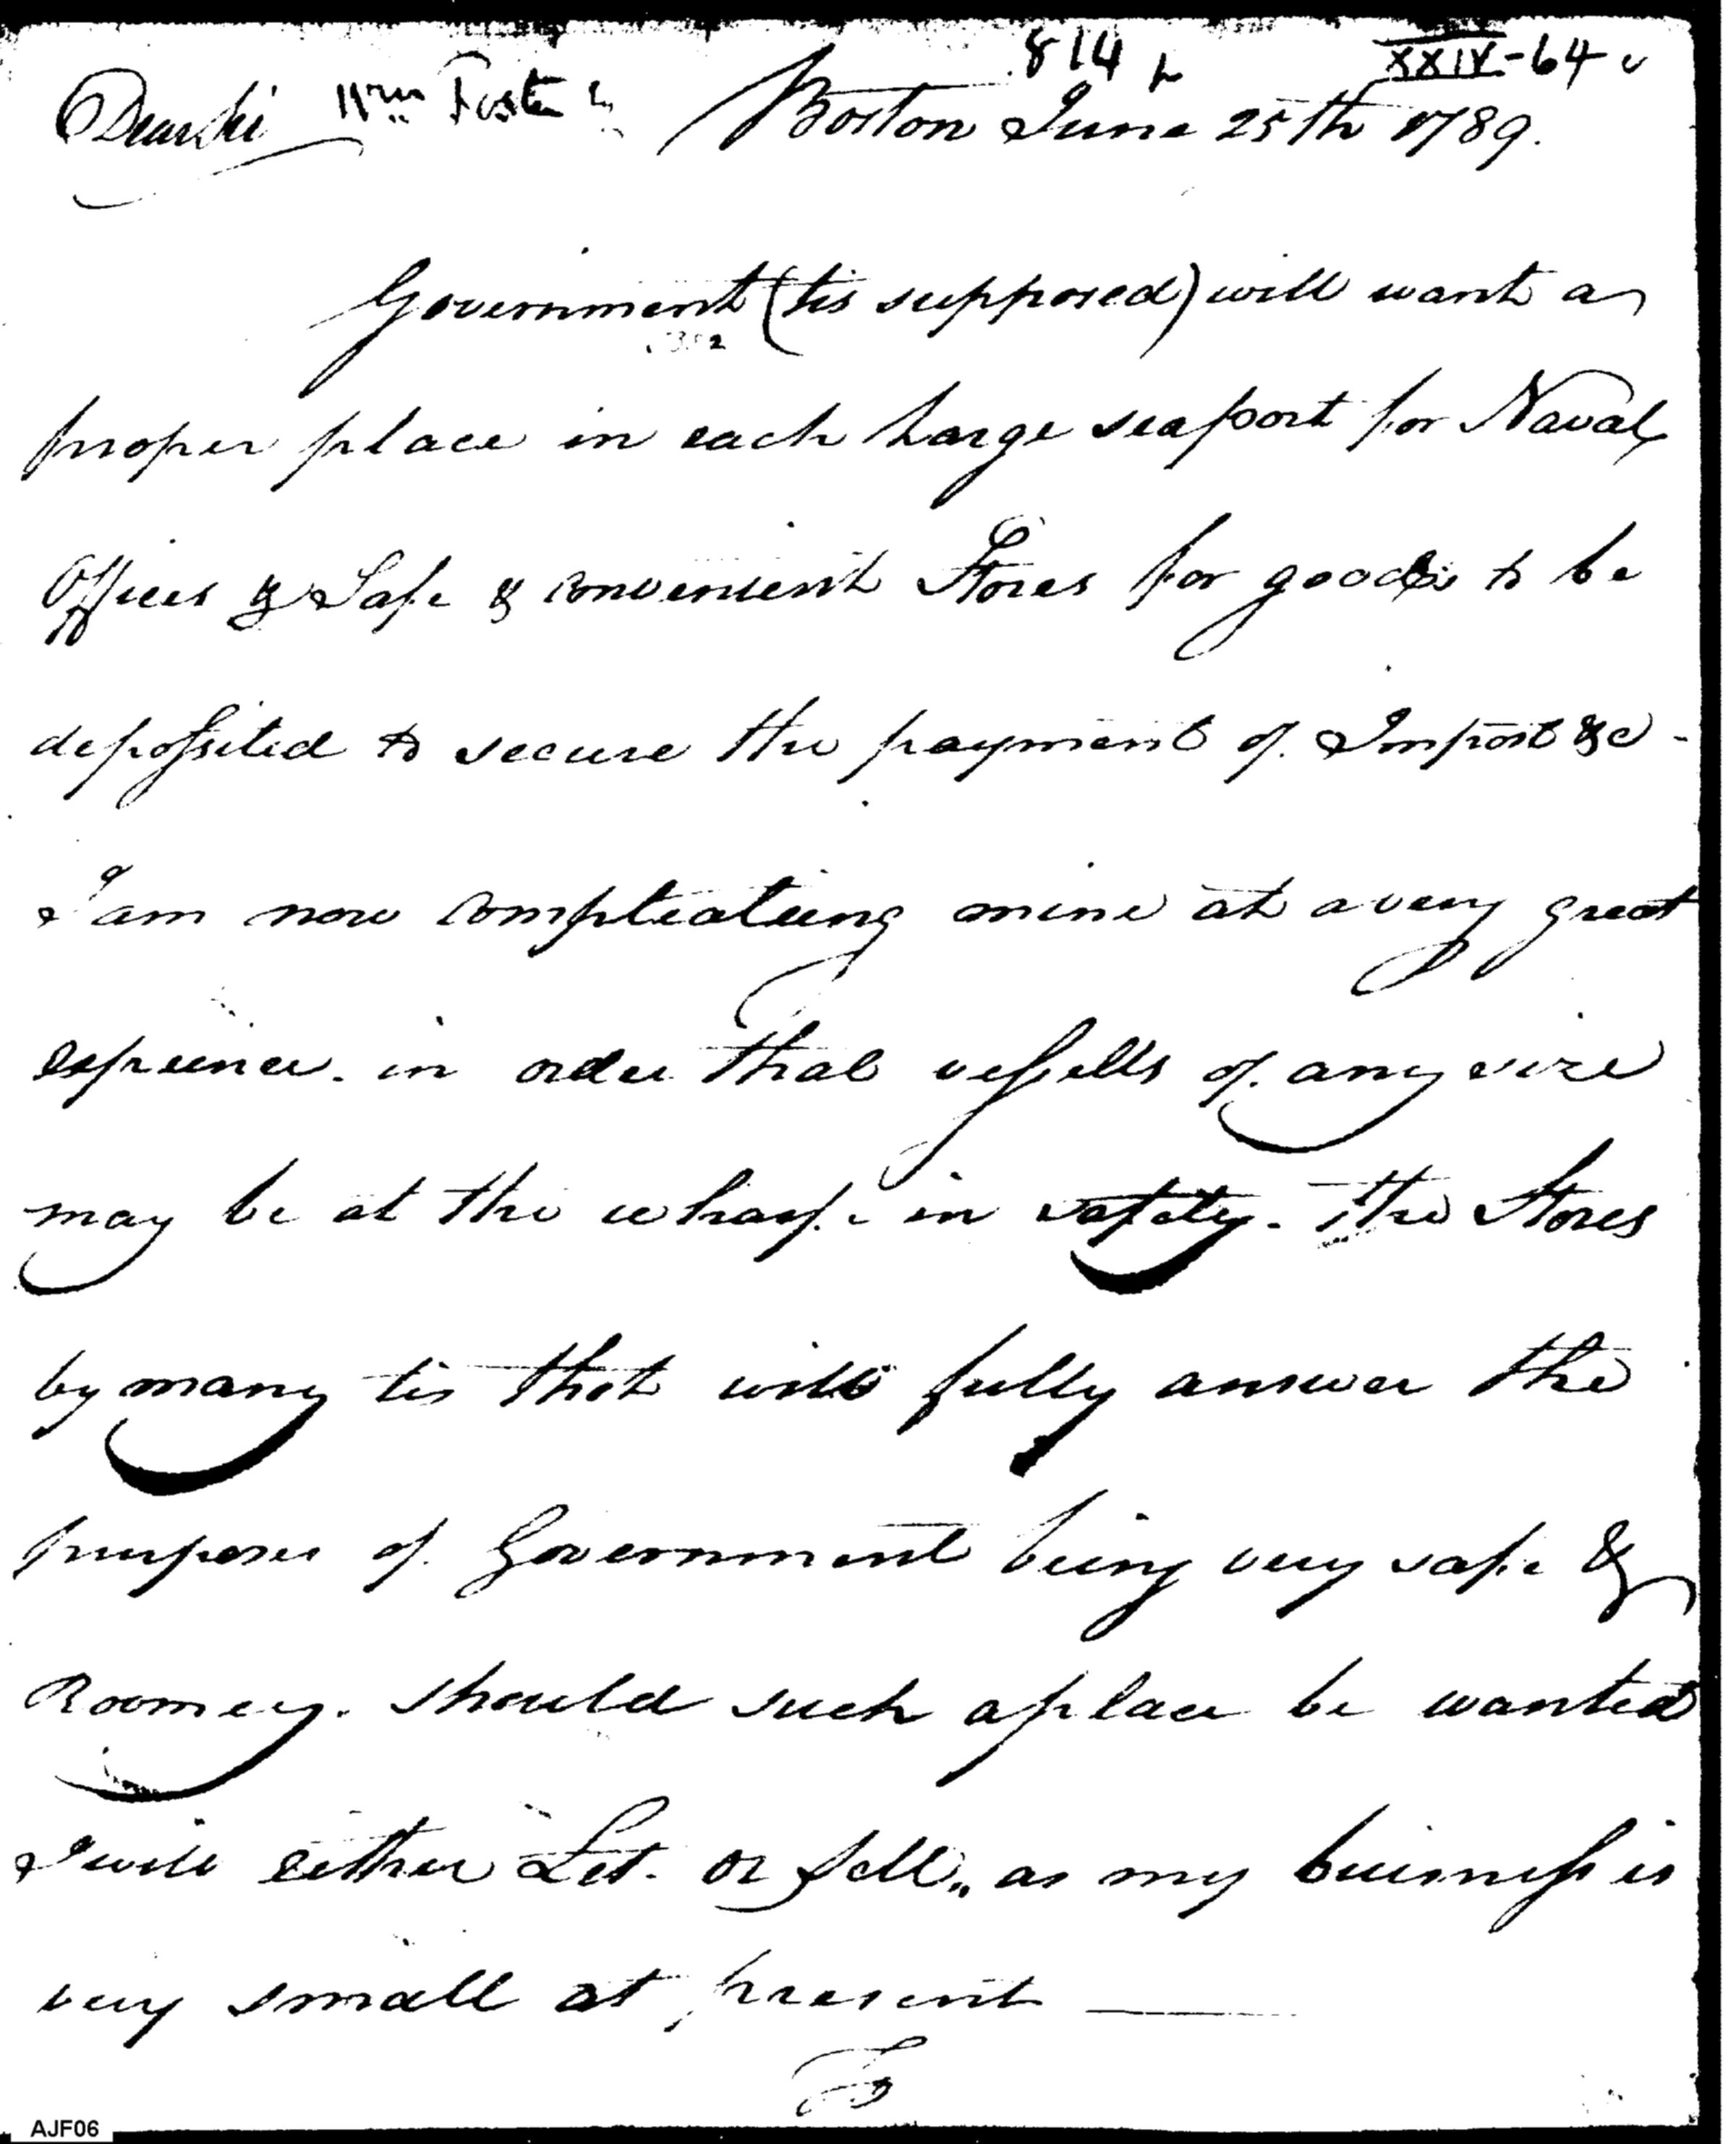 814
XXIV-64
Dear Sir Wm Foster Boston June 25th 1789.
Government (tis supposed) will want a
proper place in each Large seaport for Naval
Offices & Safe & convenient Stores for goods to be
depossited to secure the payment of Impost &c -
I am now compleating mine at a very great
in order that vessells of any size
may be at the wharfe in safety. the Stores
by many tis thot will fully answer the
purposes of Government being very safe &
Roomey. should such a place be wanted
I will either Let. or sell,, as my buisness is
very small at present
To
AJF06